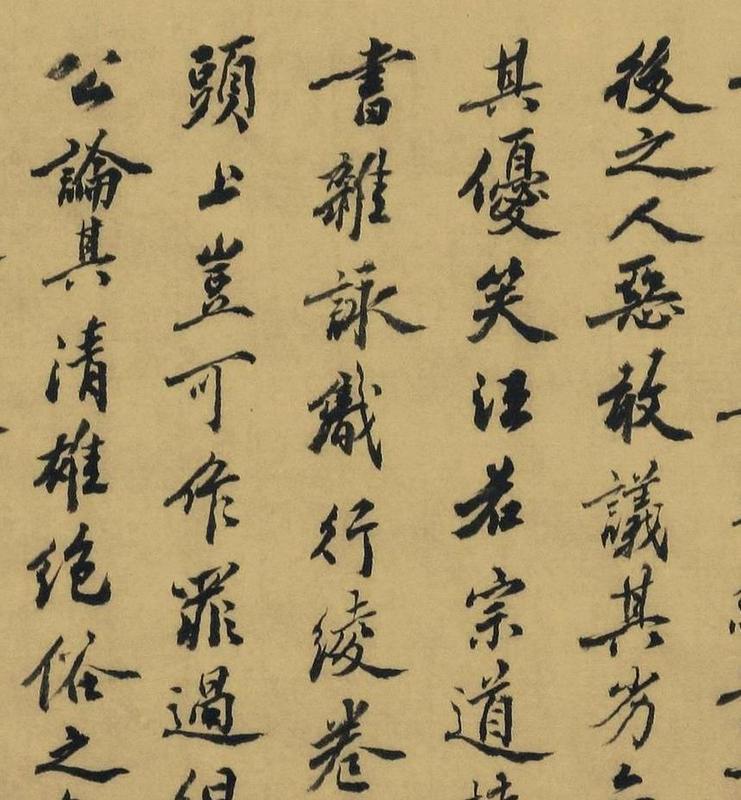 後之人惡敢議其劣
其優笑汪若宗道
書雜詠幾行綾卷
頭上豈可作罪過
公論具清雄絕俗之